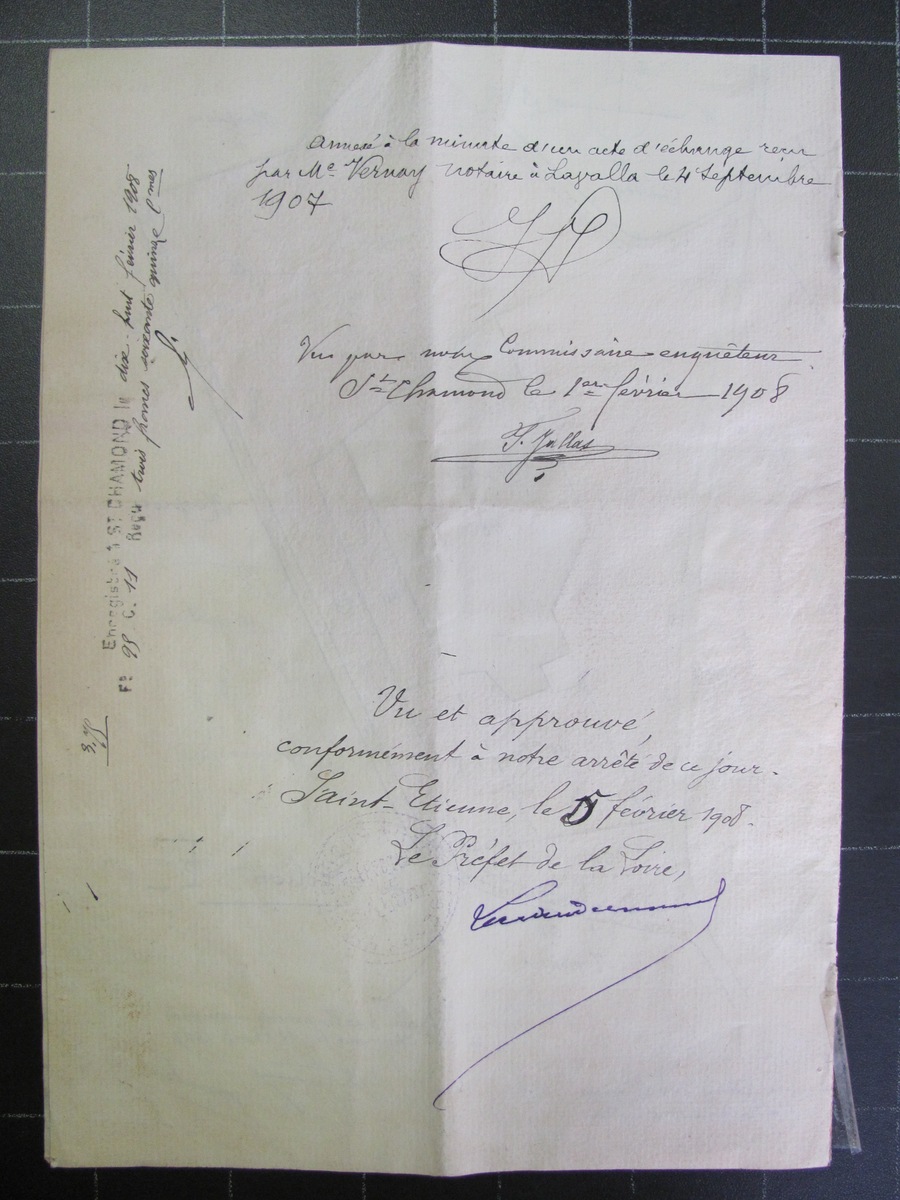 annexé à la minute d'un acte d'échange reçu
par Me Vernay notaire à Lavalla le 4 septembre
1907
Vu par nous Commissaire enquêteur
St Chamond le 1er février 1908
Vu et approuvé,
conformément à notre arrêté de ce jour.
Saint-Etienne, le 5 février 1908.
Le Préfet de la Loire,
Enregistré à ST CHAMOND le dix-huit février 1908
F° 98 C. 11 Reçu trois francs soixante quinze cmes